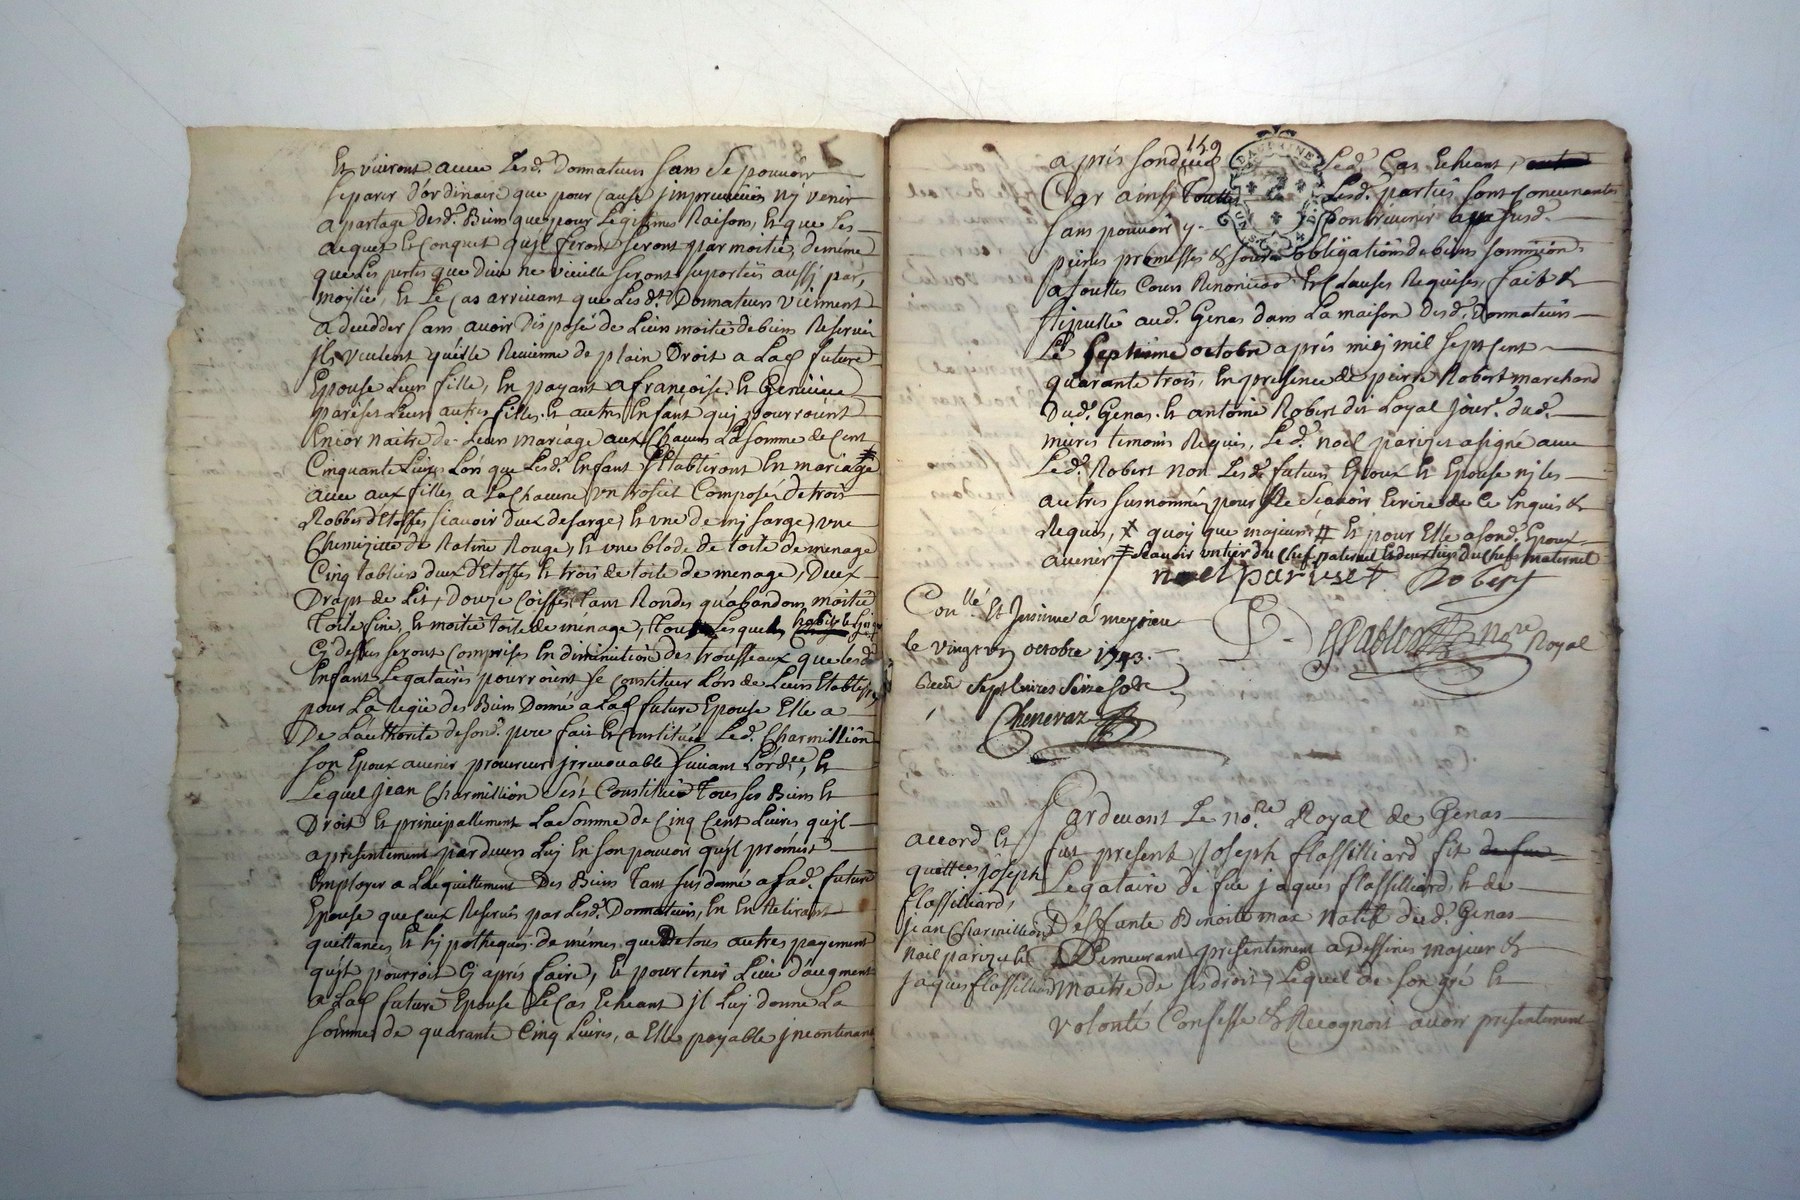 Et viuront auec Lesd. Donnateurs sans Se pouuoir
Separer d'ordinaire que pour Cause jnpreuüeüe nÿ venir
a partage desd. Biens que pour Legitimes Raisons, Et que les
acquet Et Conquet qujl feront seront par moitié, de mème
que Les pertes que dieu ne veüille seront suportées aussj par
moytié, Et Le Cas arriuant que Lesd. Donnateurs viennent
a decedder sans auoir disposé de Leurs moitié de biens Reserués
jls veulent qu'elle Reuienne de plain Droit a Lad. future
Epouse Leur fille, En payant a françoise Et Geneuieue
pariset Leurs autres filles Et autres Enfant quj pourroient
Encor naitre de Leur mariage aux Chacuns La somme de Cent
Cinquante Liures Lors que Lesd. Enfant s'Etabliront En mariage
auec aux filles a La Chacune vn trossel Composé de trois
Robbes d'Etoffes scauoir deux de sarge, Et vne de mj sarge, vne
Chemizette de Ratine Rouge, Et vne blode de toile de menage
Cinq tabliers deux d'Etoffes Et trois de toile de menage, Deux
Draps de Lit, Douze Coiffes tant Rondes qu'abandons moitié
toile fine, Et moitié toile de menage, Tous Lesquels habits & linges
Cy dessus seront Comprises En diminution des trousseaux que lesd.
Enfant Legataires pourroient se Constituer Lors de Leurs Etabliss.
pour La Regie des Biens Donné a Lad. future Epouse Elle a
De L'authorité de son d. pere fait & Constitué Led. Charmillion
son Epoux auenir procureur jrreuocable suiuant L'ord.ce, Et
Lequel jean Charmillion s'est Constitué Tous ses Biens Et
Droit Et principallement La Somme de Cinq Cent Liures qujl
a presentement par deuers Luj En son pouuoir qujl promest
Employer a L'acquittement Des Biens tant sus donné a sad. future
Epouse que Ceux Reserués par Lesd. Donnateurs, En En Retirant
quettances Et hjpotheques de mémes que De tous autres payement
qujl pourroit Cj aprés faire, & pour tenir Lieu d'augment
a Lad. future Epouse Le Cas Echeant jl Luj donne La
Somme de quarante Cinq Liures, a Elle payable jncontenant
149
aprés son deces Led. Cas Echeant,
Car ainsj Touttes Lesd. parties sont Conuenantes
sans pouuoir y Contreuenir aux susd.
peines promesses & sous obligations de biens soumission
a touttes Cours Renonciaõ Et Clauses Requises, fait &
stipullé aud. Genas dans La maison desd. Donnateurs
Le septième octobre aprés midj mil sept cent
quarante trois, En presence de pierre Robert marchand
dud. Genas Et antoine Robert dit Loyal jour. dud.
mions temoins Requis, Led. noel pariset a signé auec
Led. Robert non Lesd. futurs Epoux Et Epouse nj les
autres susnommés pour ne Scauoir Ecrire de Ce Enquis &
Requis, quoy que majeur Et pour Elle a son d. Epoux
auenir scauoir vn tier du Chef paternel & deux tiers du Chef maternel
noel pariset Robert
Pallier No.re Royal
Con.llé Et Jnsinué à meyzieu
le vingt vn octobre 1743.
Receu sept liures seize sols
Chenevaz
accord Et
quettces joseph
flassilliard,
jean Charmillion
noel pariset &
jaques flassilliard
Pardeuant Le no.re Royal de Genas
fut present joseph flassilliard fils
Legataire de feu jaques flassilliard, Et de
Deffante Benoite max natif dud. Genas
Demeurant presentement a Dessines majeur &
maitre de ses droit, Lequel de son gré Et
volonté Confesse & Recognoit auoir presentement